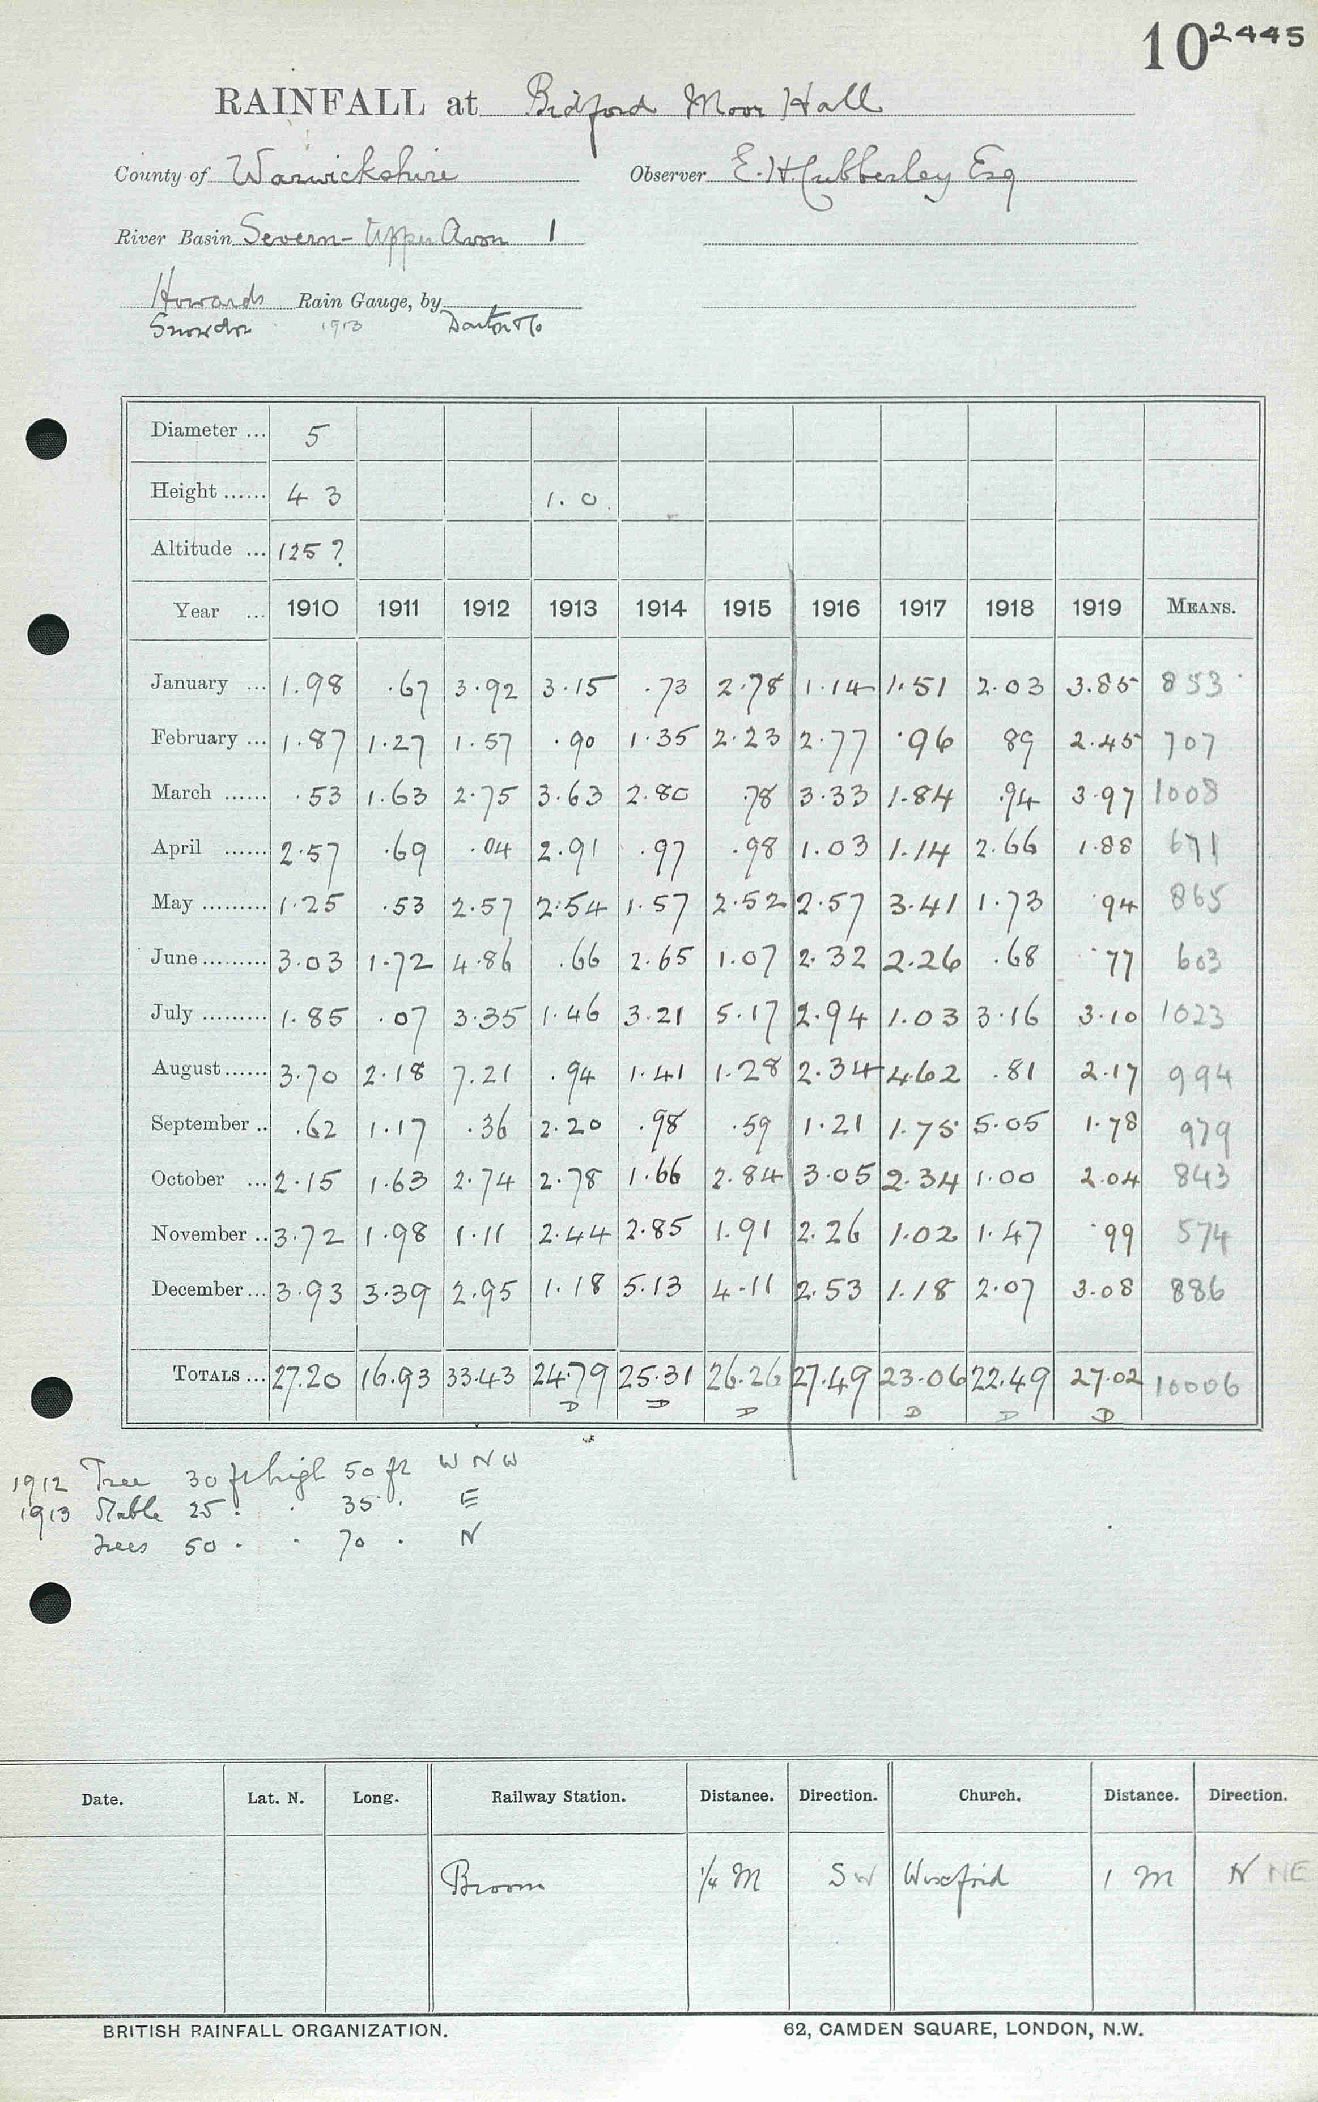 10 2445
RAINFALL at Bidford Moor Hall
County of Warwickshire Observer E. H. Cubberley Esq
River Basin Severn - Upper Avon 1
Howards Rain Gauge, by
Snowdon 1913
Diameter ... 5
Height ...... 4 3 1. 0
Altitude ... 125 ?
Year ... 1910 1911 1912 1913 1914 1915 1916 1917 1918 1919 MEANS.
January ... 1.98 .67 3.92 3.15 .73 2.78 1.14 1.51 2.03 3.85 853
February ... 1.87 1.27 1.57 .90 1.35 2.23 2.77 .96 89 2.45 707
March ...... .53 1.63 2.75 3.63 2.80 .78 3.33 1.84 .94 3.97 1008
April ...... 2.57 .69 .04 2.91 .97 .98 1.03 1.14 2.66 1.88 671
May ......... 1.25 .53 2.57 2.54 1.57 2.52 2.57 3.41 1.73 .94 865
June ......... 3.03 1.72 4.86 .66 2.65 1.07 2.32 2.26 .68 .77 603
July ......... 1.85 .07 3.35 1.46 3.21 5.17 2.94 1.03 3.16 3.10 1023
August ...... 3.70 2.18 7.21 .94 1.41 1.28 2.34 4.62 .81 2.17 994
September .. .62 1.17 .36 2.20 .98 .59 1.21 1.75 5.05 1.78 979
October ... 2.15 1.63 2.74 2.78 1.66 2.84 3.05 2.34 1.00 2.04 843
November .. 3.72 1.98 1.11 2.44 2.85 1.91 2.26 1.02 1.47 .99 574
December ... 3.93 3.39 2.95 1.18 5.13 4.11 2.53 1.18 2.07 3.08 886
TOTALS ... 27.20 16.93 33.43 24.79 25.31 26.26 27.49 23.06 22.49 27.02 10006
D D D D D D
1912 Tree 30 ft high 50 ft W N W
1913 Stable 25 . . 35 . E
Trees 50 . . 70 . N
Date. Lat. N. Long. Railway Station. Distance. Direction. Church. Distance. Direction.
Broom 1/4 M SW Wixford 1 M N NE
BRITISH RAINFALL ORGANIZATION. 62, CAMDEN SQUARE, LONDON, N.W.